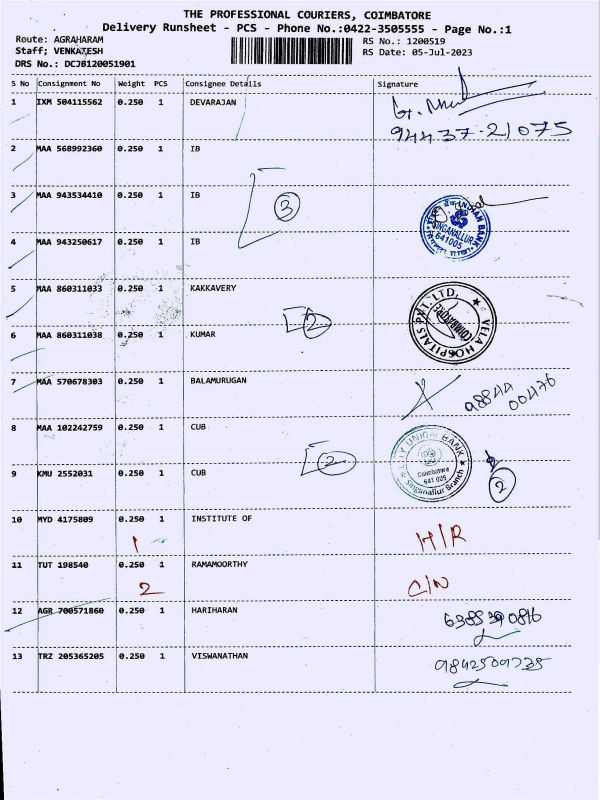 THE PROFESSIONAL COURIERS, COIMBATORE
Delivery Runsheet - PCS - Phone No.:0422-3505555 - Page No.:1
Route: AGRAHARAM RS No.: 1200519
Staff; VENKATESH RS Date: 05-Jul-2023
DRS No.: DCJ8120051901
S No Consignment No Weight PCS Consignee Details Signature
1 IXM 504115562 0.250 1 DEVARAJAN
94437-21075
2 MAA 568992360 0.250 1 IB
3 MAA 943534410 0.250 1 IB
3
INDIAN BANK SINGANALLUR 641005
4 MAA 943250617 0.250 1 IB
5 MAA 860311033 0.250 1 KAKKAVERY
2
VELA HOSPITALS PVT. LTD. COIMBATORE
6 MAA 860311038 0.250 1 KUMAR
7 MAA 570678303 0.250 1 BALAMURUGAN
98844
00476
8 MAA 102242759 0.250 1 CUB
CITY UNION BANK Coimbatore 641 005 Singanallur Branch
2
2
9 KMU 2552031 0.250 1 CUB
10 MYD 4175809 0.250 1 INSTITUTE OF
1 H/R
11 TUT 198540 0.250 1 RAMAMOORTHY
2 C/N
12 AGR 700571860 0.250 1 HARIHARAN
13 TRZ 205365205 0.250 1 VISWANATHAN